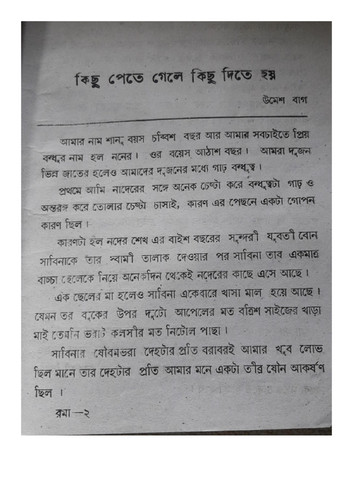 কিছু পেতে গেলে কিছু দিতে হয়
উমেশ বাগ
আমার নাম শানু বয়স চব্বিশ বছর আর আমার সবচাইতে প্রিয়
বন্ধুর নাম হল নদের। ওর বয়েস আঠাশ বছর। আমরা দুজন
ভিন্ন জাতের হলেও আমাদের দুজনের মধ্যে গাঢ় বন্ধুত্ব।
প্রথমে আমি নাদেরের সঙ্গে অনেক চেষ্টা করে বন্ধুত্বটা গাঢ় ও
অন্তরঙ্গ করে তোলার চেষ্টা চালাই, কারণ এর পেছনে একটা গোপন
কারণ ছিল।
কারণটা হল নদের শেখ এর বাইশ বছরের সুন্দরী যুবতী বোন
সাবিনাকে তার স্বামী তালাক দেওয়ার পর সাবিনা তার একমাত্র
বাচ্চা ছেলেকে নিয়ে অনেকদিন থেকেই নদেরের কাছে এসে আছে।
এক ছেলের মা হলেও সাবিনা একেবারে খাসা মাল হয়ে আছে।
যেমন তর বুকের উপর দুটো আপেলের মত বত্রিশ সাইজের খাড়া
মাই তেমনি ভরাট কলসীর মত নিটোল পাছা।
সাবিনার যৌবনভরা দেহটার প্রতি বরাবরই আমার খুব লোভ
ছিল মানে তার দেহটার প্রতি আমার মনে একটা তীব্র যৌন আকর্ষণ
ছিল।
রমা—২